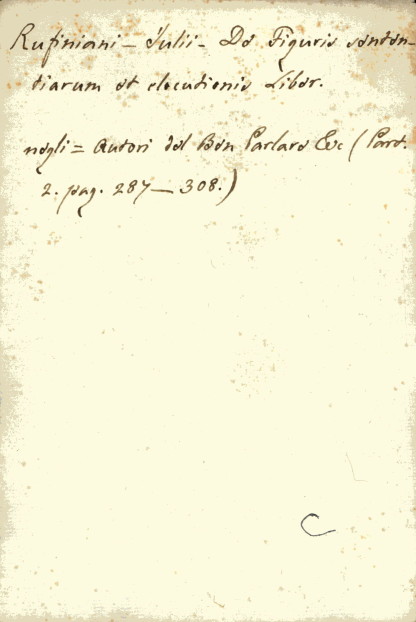 Rufiniani - Julii - De Figuris senten-
tiarum et elocutionis Liber.
negli = Autori del Ben Parlare &c (Part.
2. pag. 287 — 308.)
C